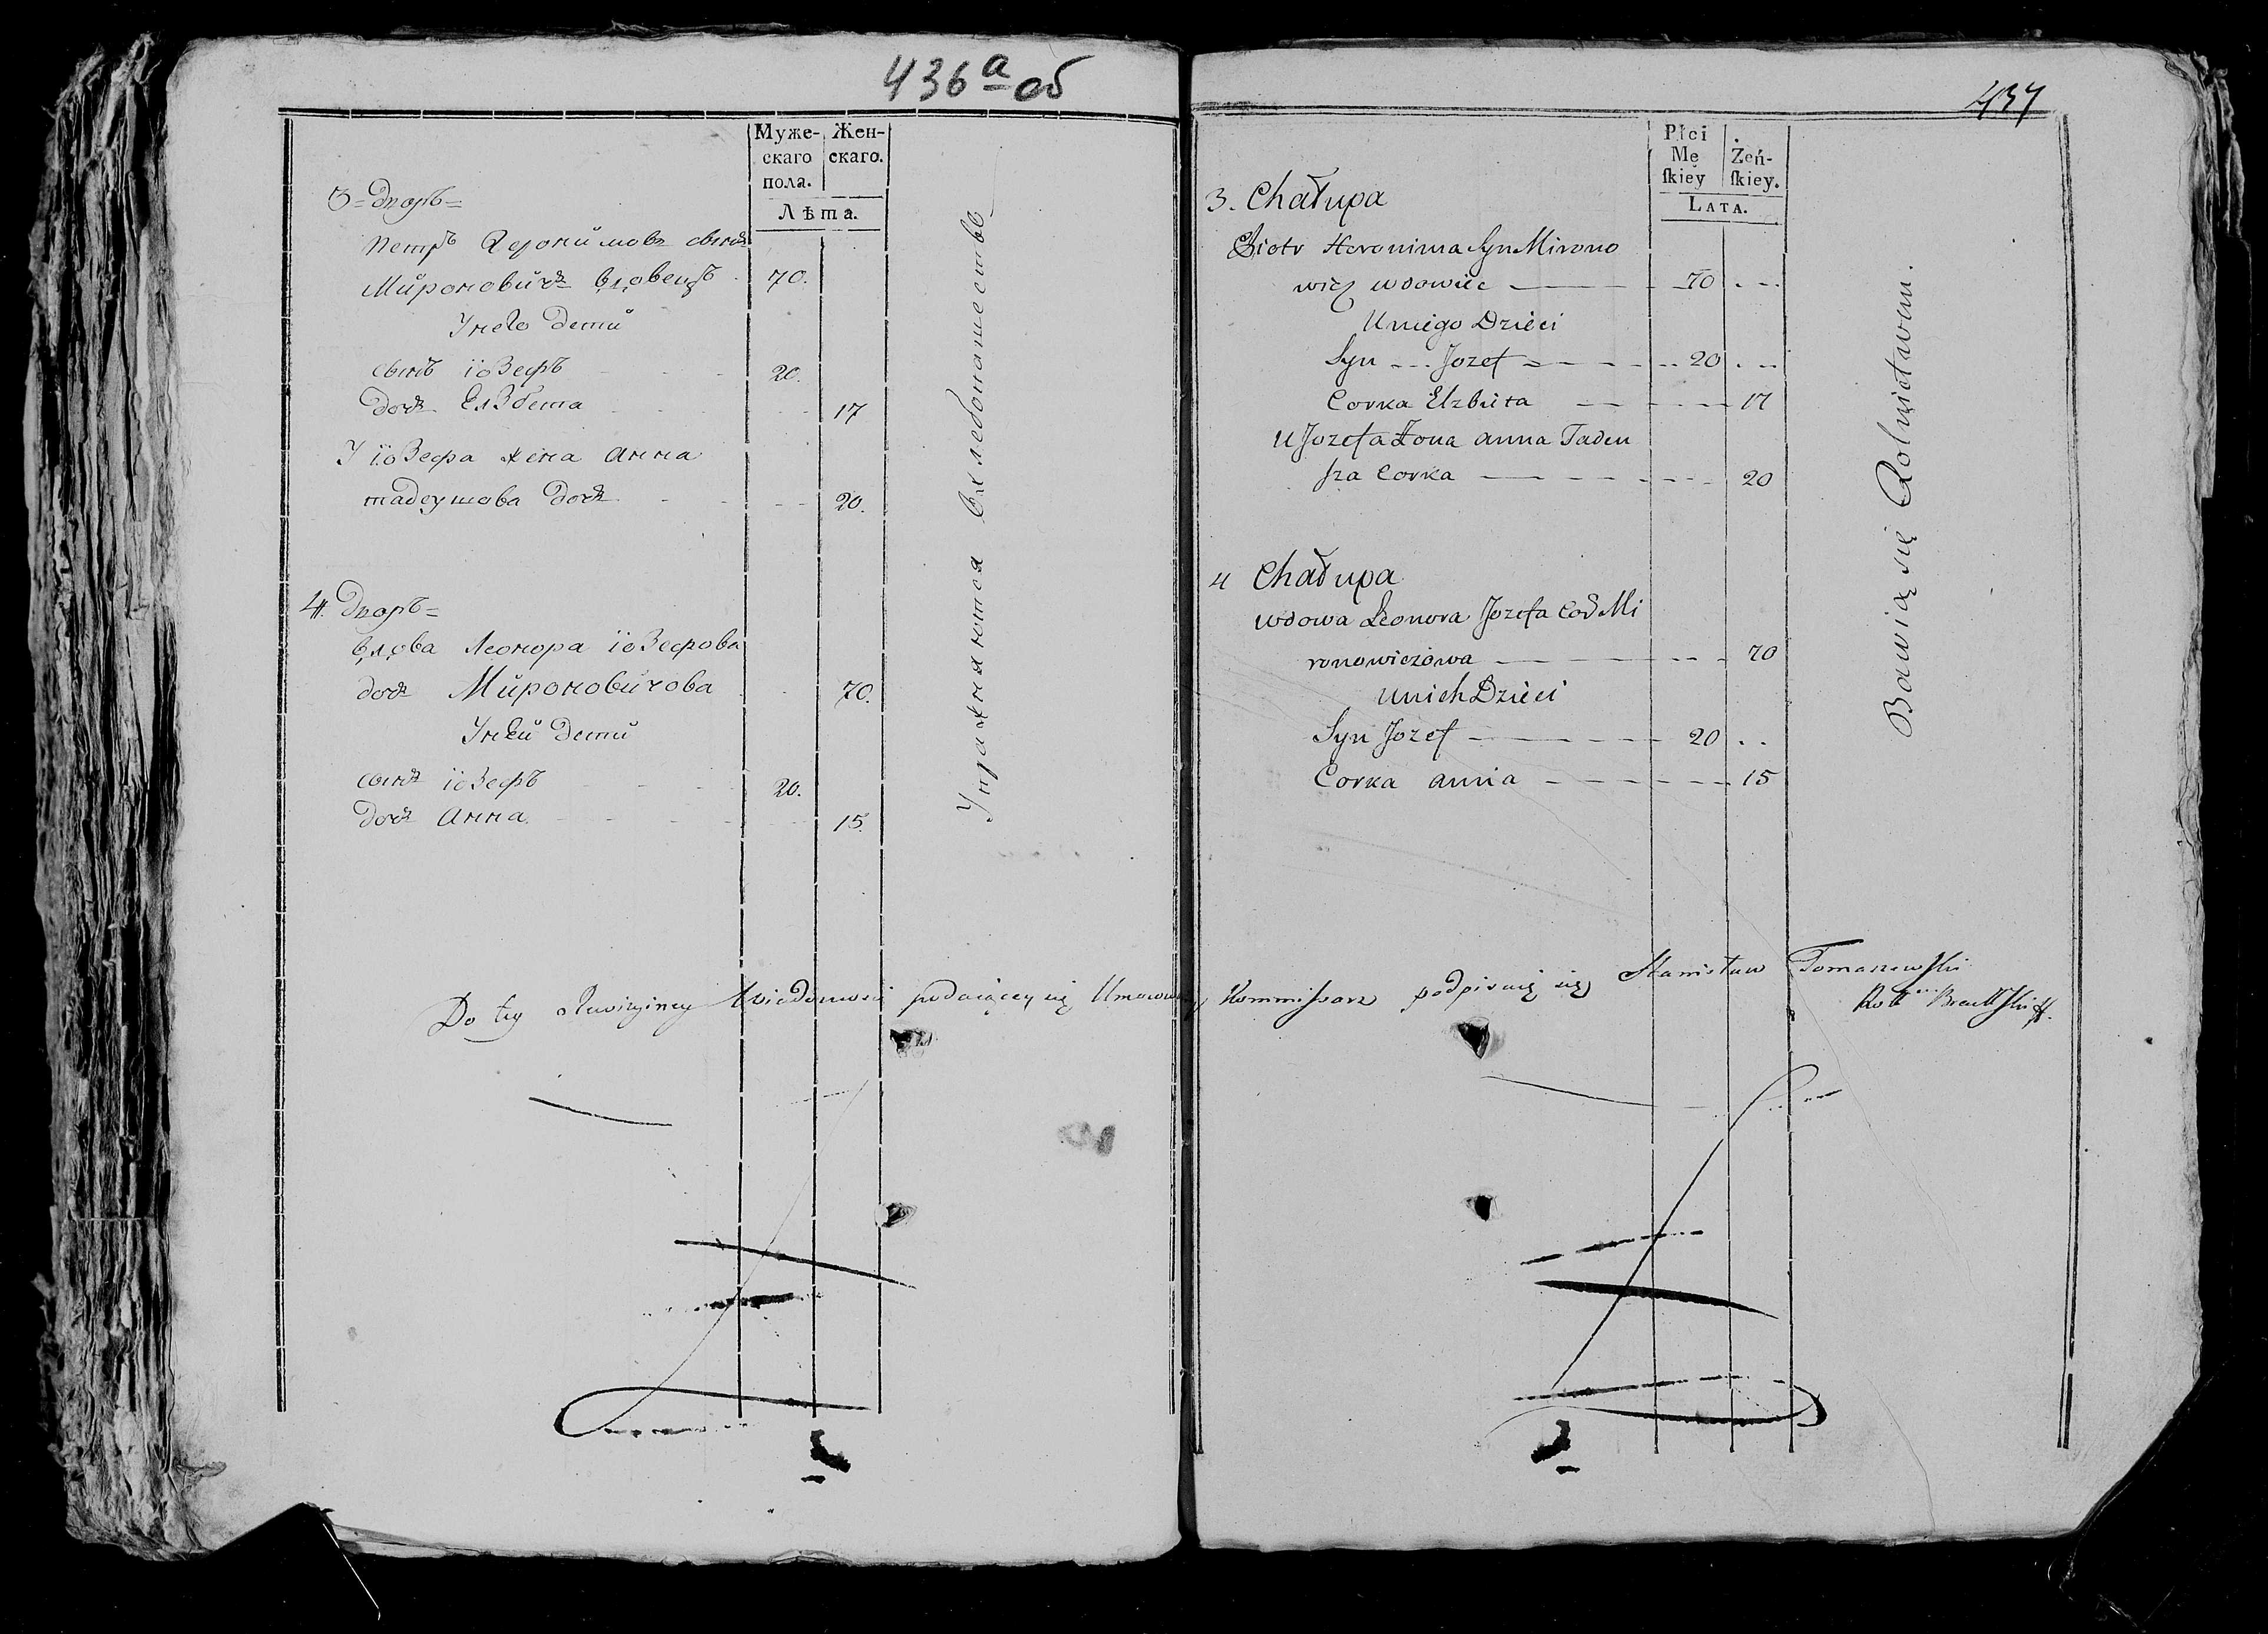 436 а об
Муже-
скаго
пола.
Жен-
скаго.
Лѣта.
3 = Дворъ =
Петръ Херонимовъ сынъ
Мироновичъ вдовецъ 70.
У него дети
сынъ іозефъ 20.
дочь Елзбета 17
У іозефа жена Анна
тадеушова дочь 20.
4. Дворъ =
вдова Леонора іозефова
дочь Мироновичова 70.
У ней дети
сынъ іозефъ 20.
дочь Анна 15.
Упражняются въ хлебопашестве
437
Płci
Mę
ſkiey
Żeń-
ſkiey.
LATA.
3. Chałupa
Piotr Heronima Syn Mirono
wicz wdowiec 70
U niego Dzieci
Syn Jozef 20
Corka Elzbieta 17
U Jozefa Zona anna Tadeu
sza Corka 20
4 Chałupa
wdowa Leonora Jozefa Cor Mi
ronowiczowa 70
U nich Dzieci
Syn Jozef 20
Corka anna 15
Bawią się Rolnictwem.
Do tey Rewizyiney Wiadomosci podaiącey się Kommissarz podpisuię się Stanisław Tomaszewski